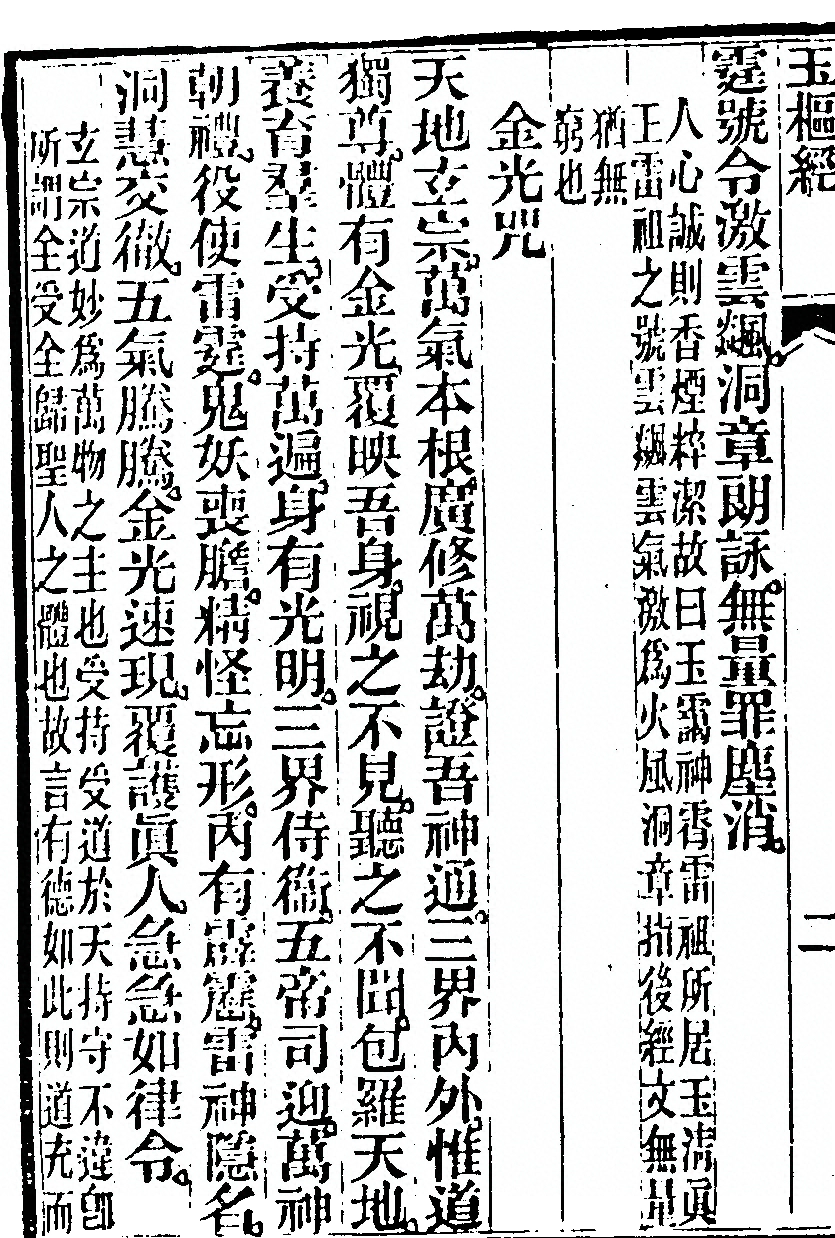 玉樞經
二
霆號令激雲飈洞章朗詠無量罪塵消
人心誠則香煙粹潔故曰玉靄神霄雷祖所居玉淸眞
王雷祖之號雲飈雲氣激爲火風洞章指後經文無量
猶無
窮也
金光咒
天地玄宗萬氣本根廣修萬劫證吾神通三界內外惟道
獨尊體有金光覆映吾身視之不見聽之不聞包羅天地
養育羣生受持萬遍身有光明三界侍衞五帝司迎萬神
朝禮役使雷霆鬼妖喪膽精怪忘形內有霹靂雷神隱名
洞慧交徹五氣騰騰金光速現覆護眞人急急如律令
玄宗道妙爲萬物之主也受持受道於天持守不違卽
所謂全受全歸聖人之體也故言有德如此則道充而